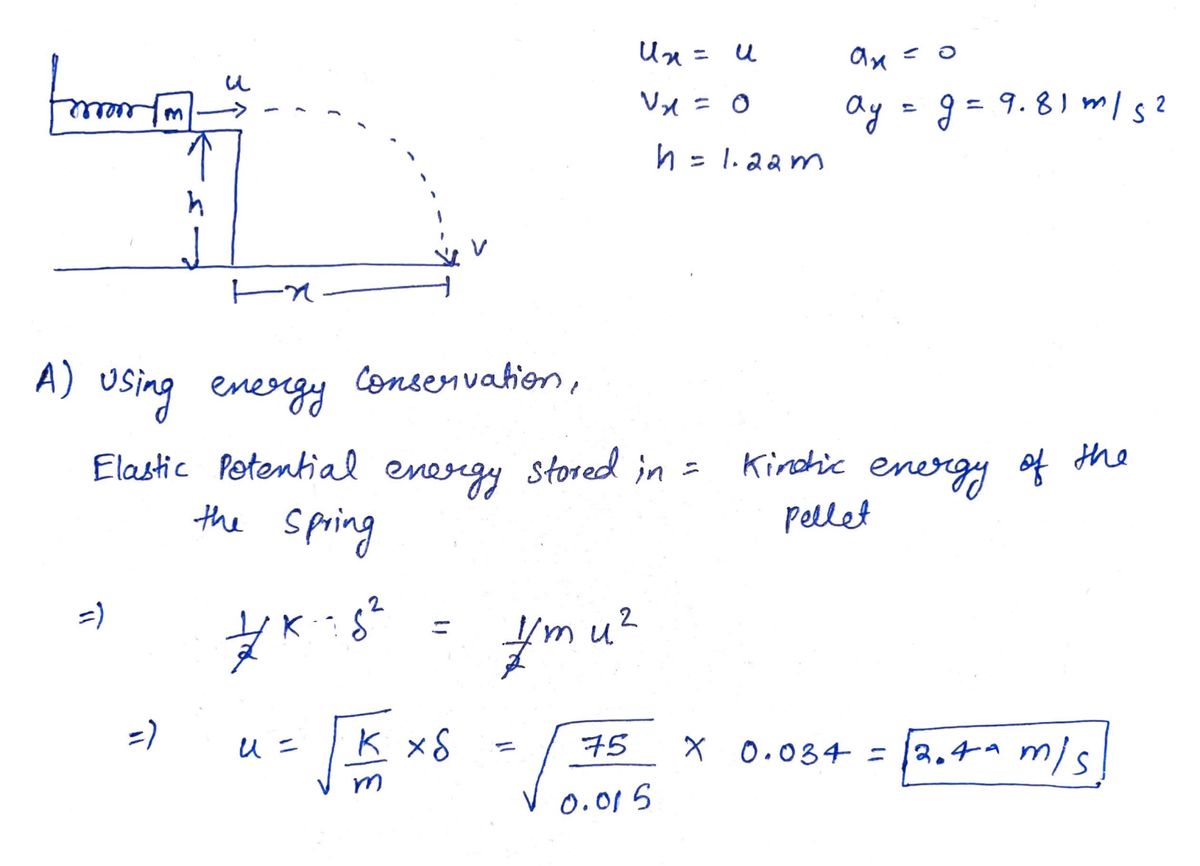 u
m
h
v
x
Ux = u ax = 0
Vx = 0 ay = g = 9.81 m/s²
h = 1.22m
A) Using energy Conservation,
Elastic Potential energy stored in = Kinetic energy of the
the spring pellet
=) 1/2 K δ² = 1/2 m u²
=) u = √(K/m) × δ = √(75/0.015) × 0.034 = 2.4 m/s